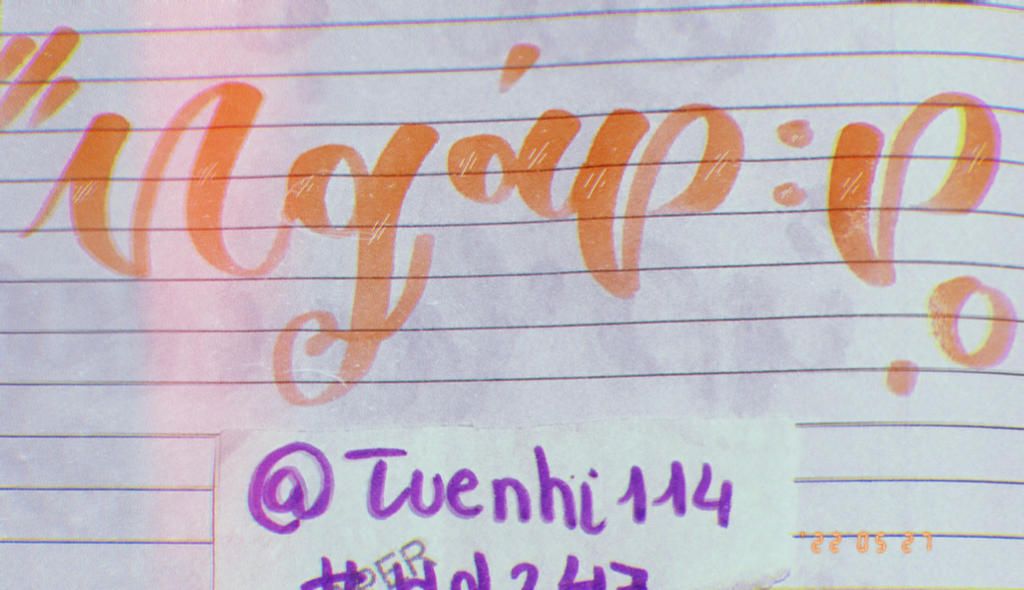 Ngáp:p
@Tuenhi114
'22 05 27